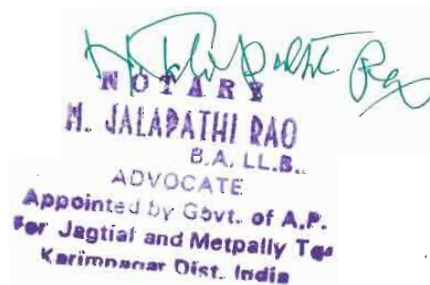 NOTARY
M. JALAPATHI RAO
B.A. LL.B.
ADVOCATE
Appointed by Govt. of A.P.
For Jagtial and Metpally
Karimnagar Dist. India